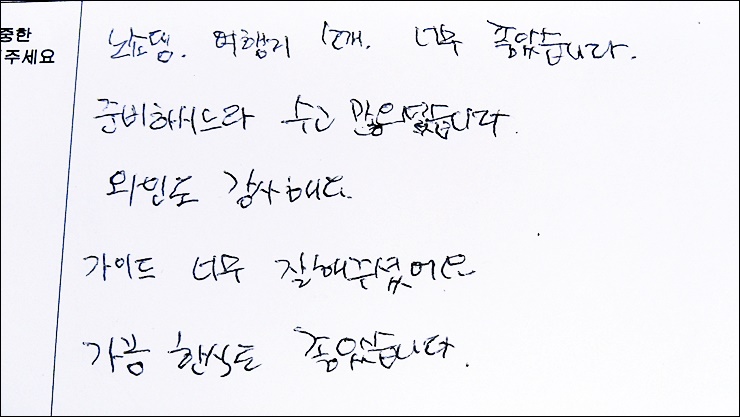 중한
주세요
노쇼뎅. 여행지 소개. 너무 좋았습니다.
준비하시느라 수고 많으셨습니다.
와인도 감사해요.
가이드 너무 잘해주셨어요
가끔 한식도 좋았습니다.